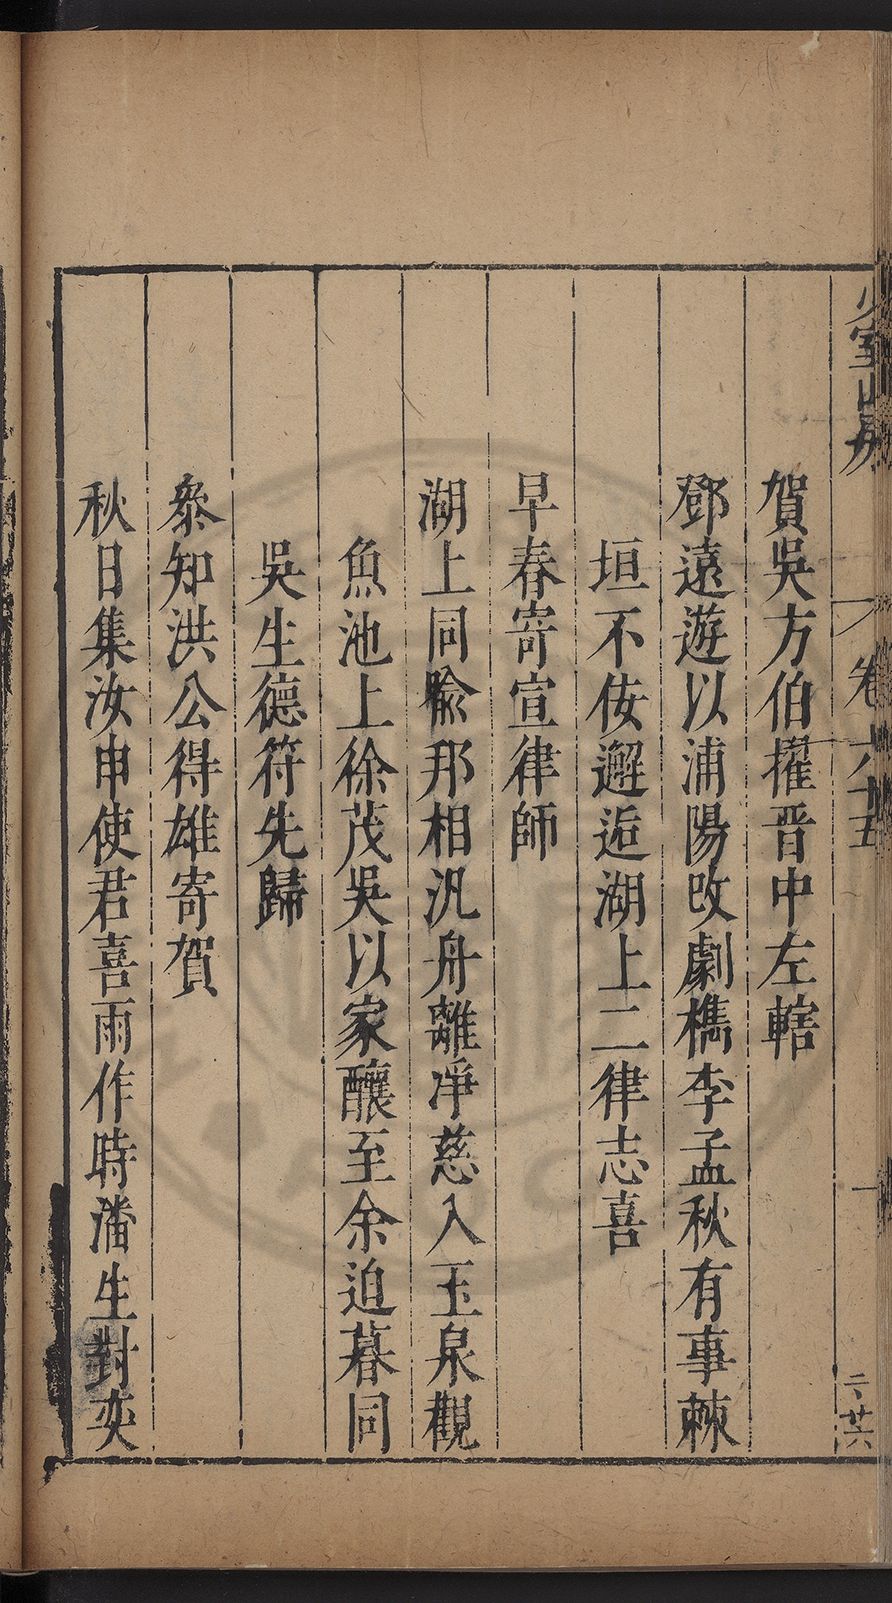 少室山房 卷六十五 一 二廿六
賀吳方伯擢晋中左轄
鄧遠遊以浦陽改劇檇李孟秋有事棘
垣不佞邂逅湖上二律志喜
早春寄宣律師
湖上同喻那相汎舟離凈慈入玉泉觀
魚池上徐茂吳以家釀至余迫暮同
吳生德符先歸
叅知洪公得雄寄賀
秋日集汝申使君喜雨作時潘生對奕